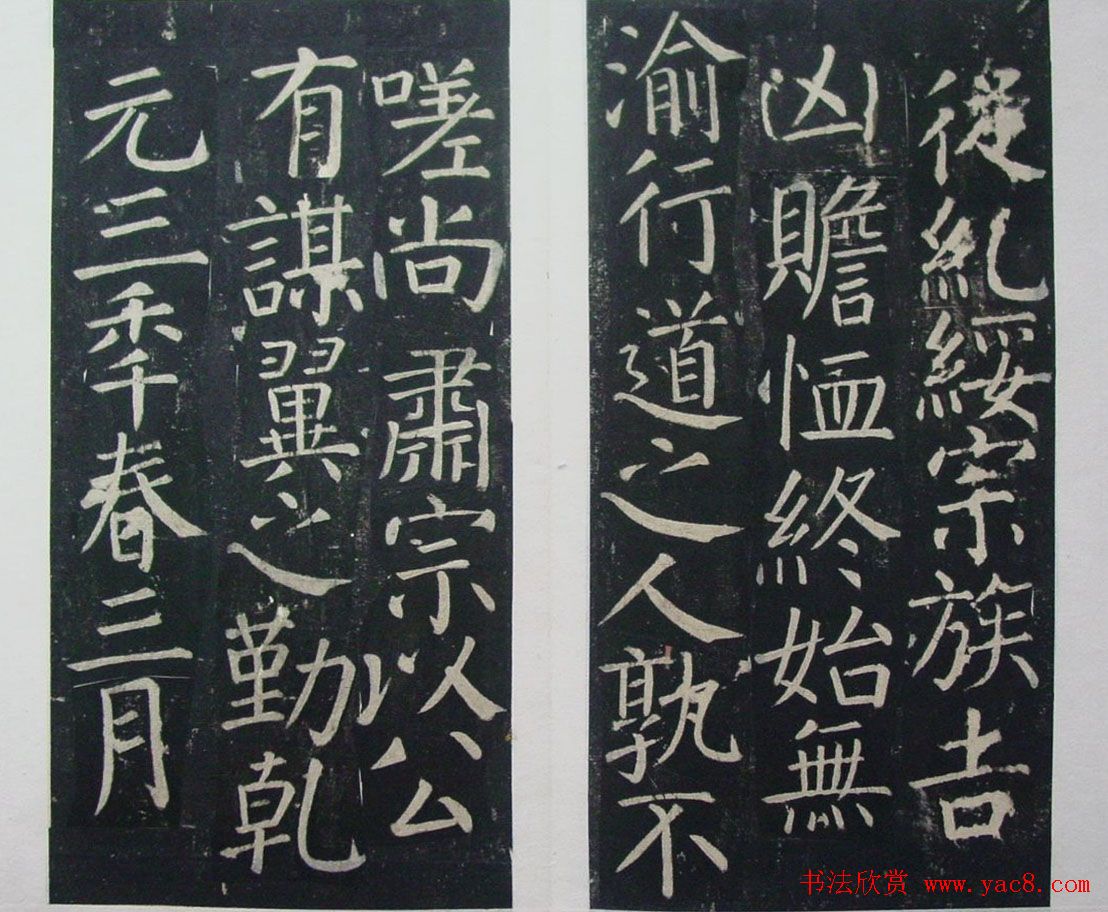 從糺綏宗族吉
凶贍恤終始無
渝行道之人孰不
嗟尚肅宗以公
有謀翼之勤乾
元三秊春三月
书法欣赏 www.yac8.com